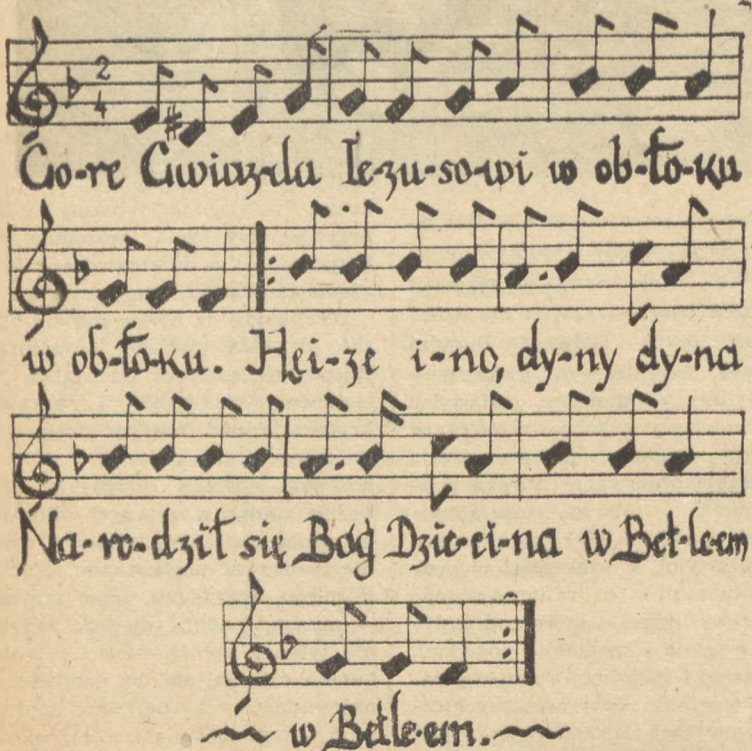 2
4
Go-re Gwiaz-da Ie-zu-so-wi w ob-ło-ku
w ob-ło-ku. Hei-ze i-no, dy-ny dy-na
Na-ro-dził się Bóg Dzie-ci-na w Bet-le-em
~ w Betle-em. ~